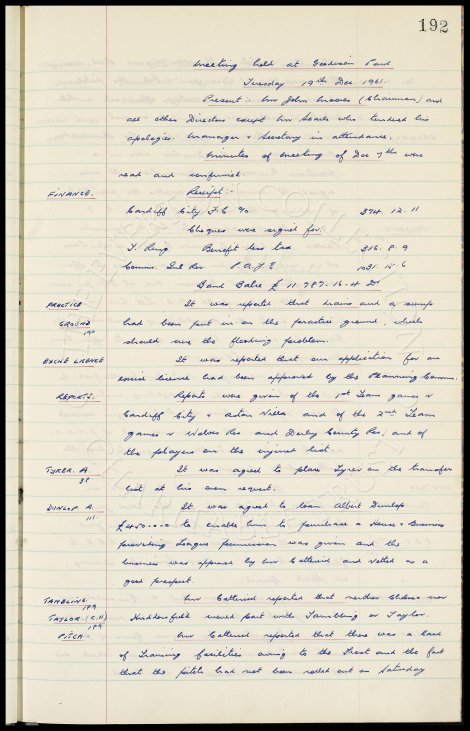 192
Meeting held at Goodison Park
Tuesday 19th Dec. 1961.
Present :- Mr John Moores (Chairman) and
all other Directors except Mr Searle who tendered his
apologies. Manager & Secretary in attendance.
Minutes of Meeting of Dec 7th were
read and confirmed
FINANCE. Receipt :-
Cardiff City F.C % 374. 12. 11
Cheques were signed for:
T. Ring Benefit less tax 316. 8. 9
Comms. Inl Rev. P.A.Y.E 1031. 15. 6
Bank Balce £ 11.787. 16. 4 Dr
PRACTICE It was reported that drains and a sump
GROUND had been put in on the practice ground, which
190
should cure the flooding problem.
EXCISE LICENCE It was reported that our application for an
excise license had been approved by the Planning Comm.
REPORTS. Reports were given of the 1st Team games v
Cardiff City & Aston Villa and of the 2nd Team
games v Wolves Res and Derby County Res, and of
the players on the injured list.
TYRER. A. It was agreed to place Tyrer on the transfer
38
list at his own request.
DUNLOP A. It was agreed to loan Albert Dunlop
111
£450-0-0 to enable him to purchase a House & Business
providing League permission was given and the
business was approved by Mr Catterick and vetted as a
good prospect.
TAMBLING Mr Catterick reported that neither Chelsea nor
189
TAYLOR (C.H) Huddersfield would part with Tambling or Taylor.
189
PITCH. Mr Catterick reported that there was a lack
of Training facilities owing to the Frost and the fact
that the pitch had not been rolled out on Saturday